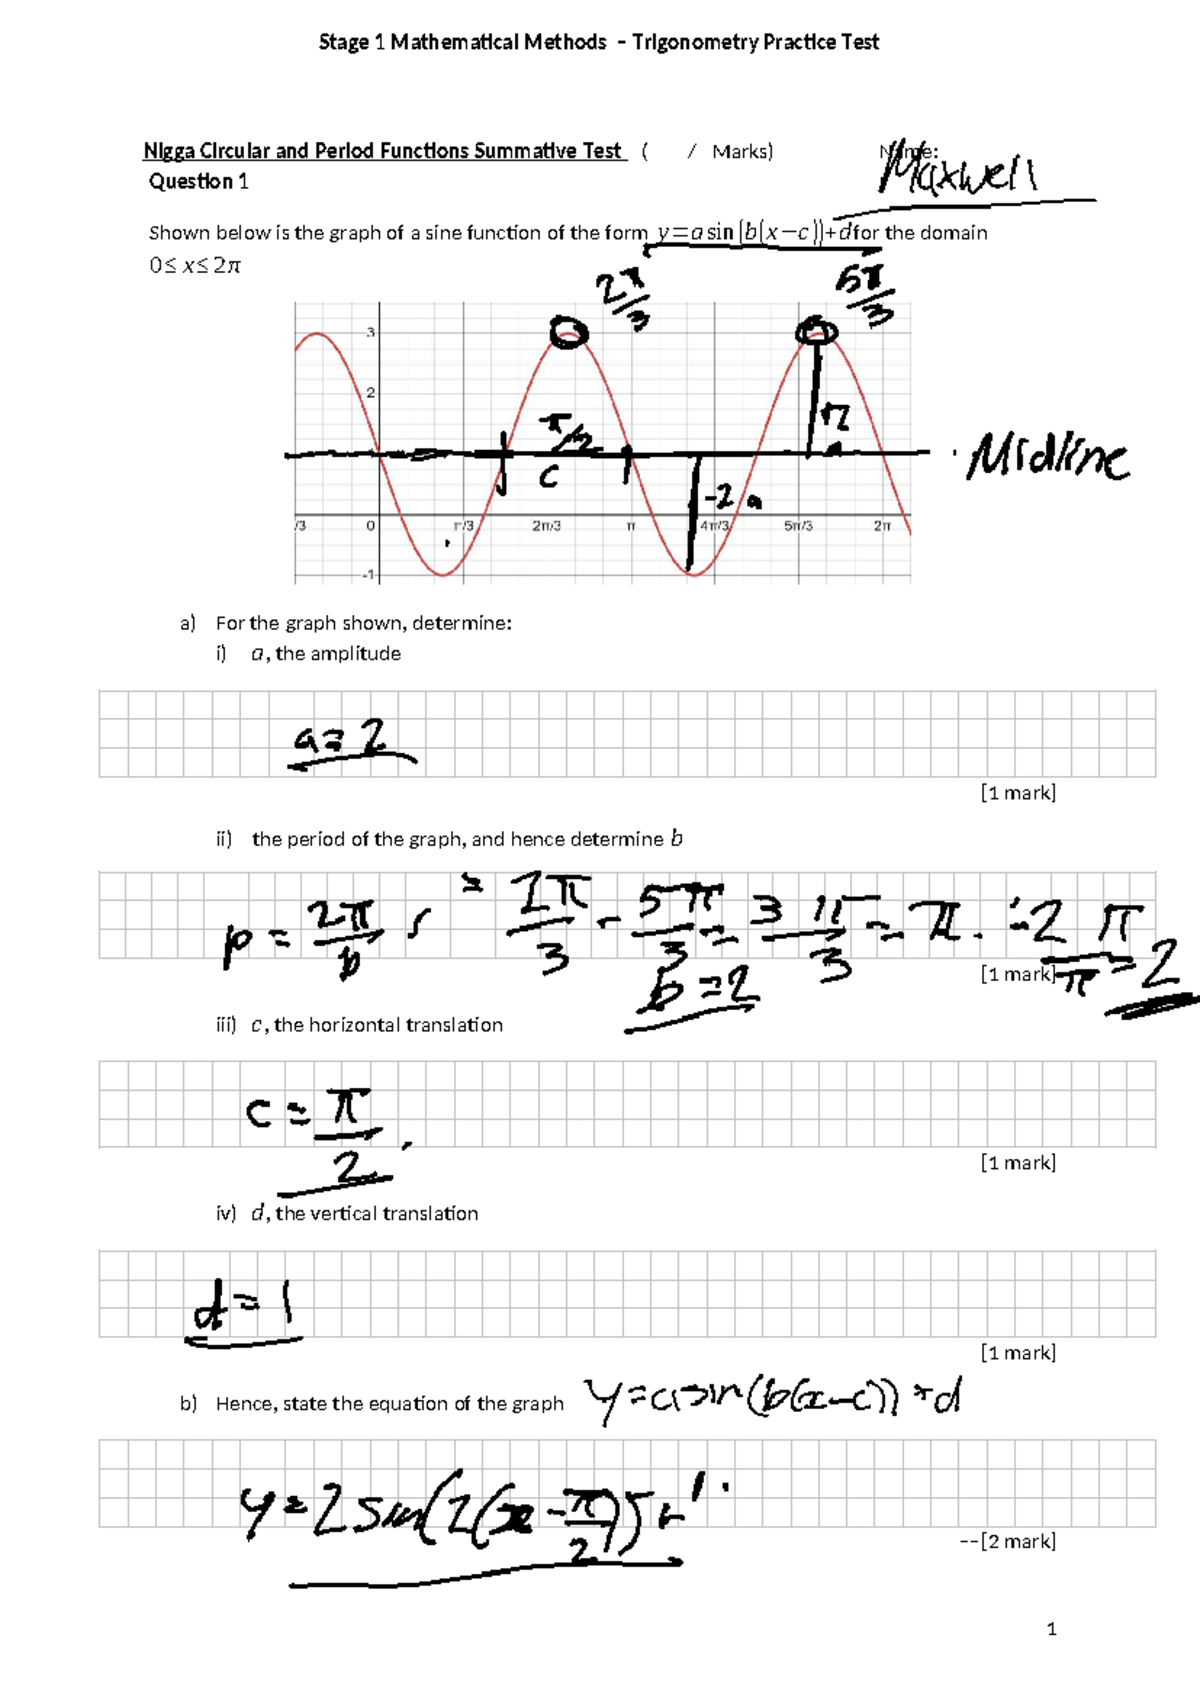 Stage 1 Mathematical Methods – Trigonometry Practice Test
Nigga Circular and Period Functions Summative Test ( / Marks) Name:
Maxwell
Question 1
Shown below is the graph of a sine function of the form y=a sin(b(x−c))+d for the domain
0≤ x≤ 2π
2π/3
5π/3
3
2
π/2
+2
a
Midline
c
-2 a
/3 0 π/3 2π/3 π 4π/3 5π/3 2π
-1
a) For the graph shown, determine:
i) a, the amplitude
a=2
[1 mark]
ii) the period of the graph, and hence determine b
p = 2π/b = 2π/3 - 5π/3 = 3π/3 = π. ∴ 2π/π = 2
[1 mark]
b=2
iii) c, the horizontal translation
c = π/2
[1 mark]
iv) d, the vertical translation
d=1
[1 mark]
b) Hence, state the equation of the graph y=a sin(b(x-c))+d
y=2sin(2(x-π/2))+1.
--[2 mark]
1